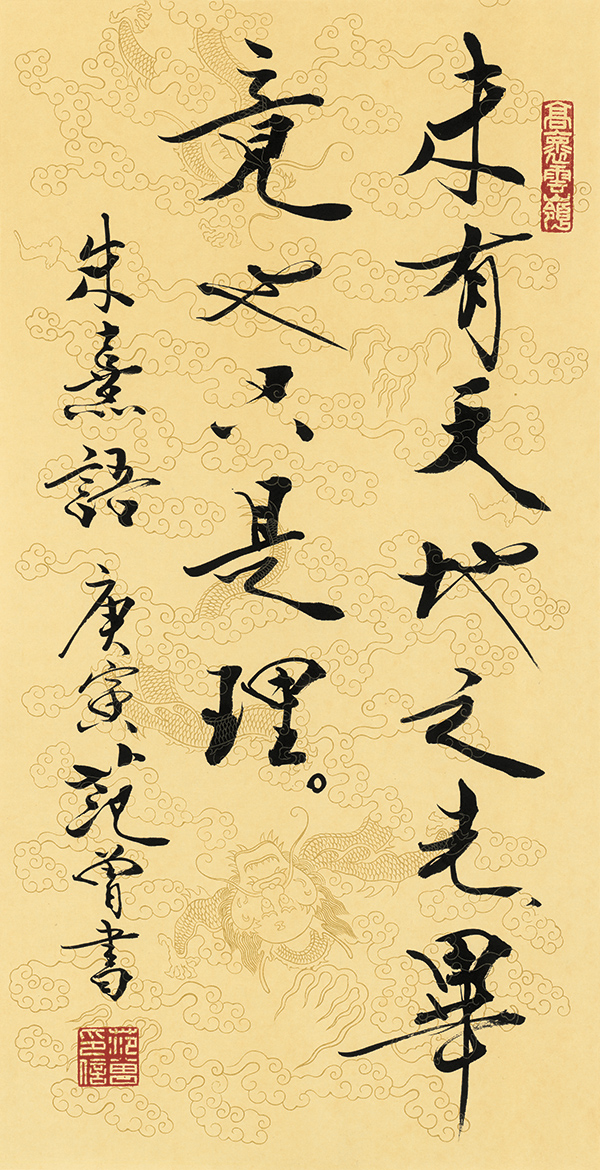 未有天地之先、畢
竟也只是理。
朱熹語 庚寅范曾書
范曾印信